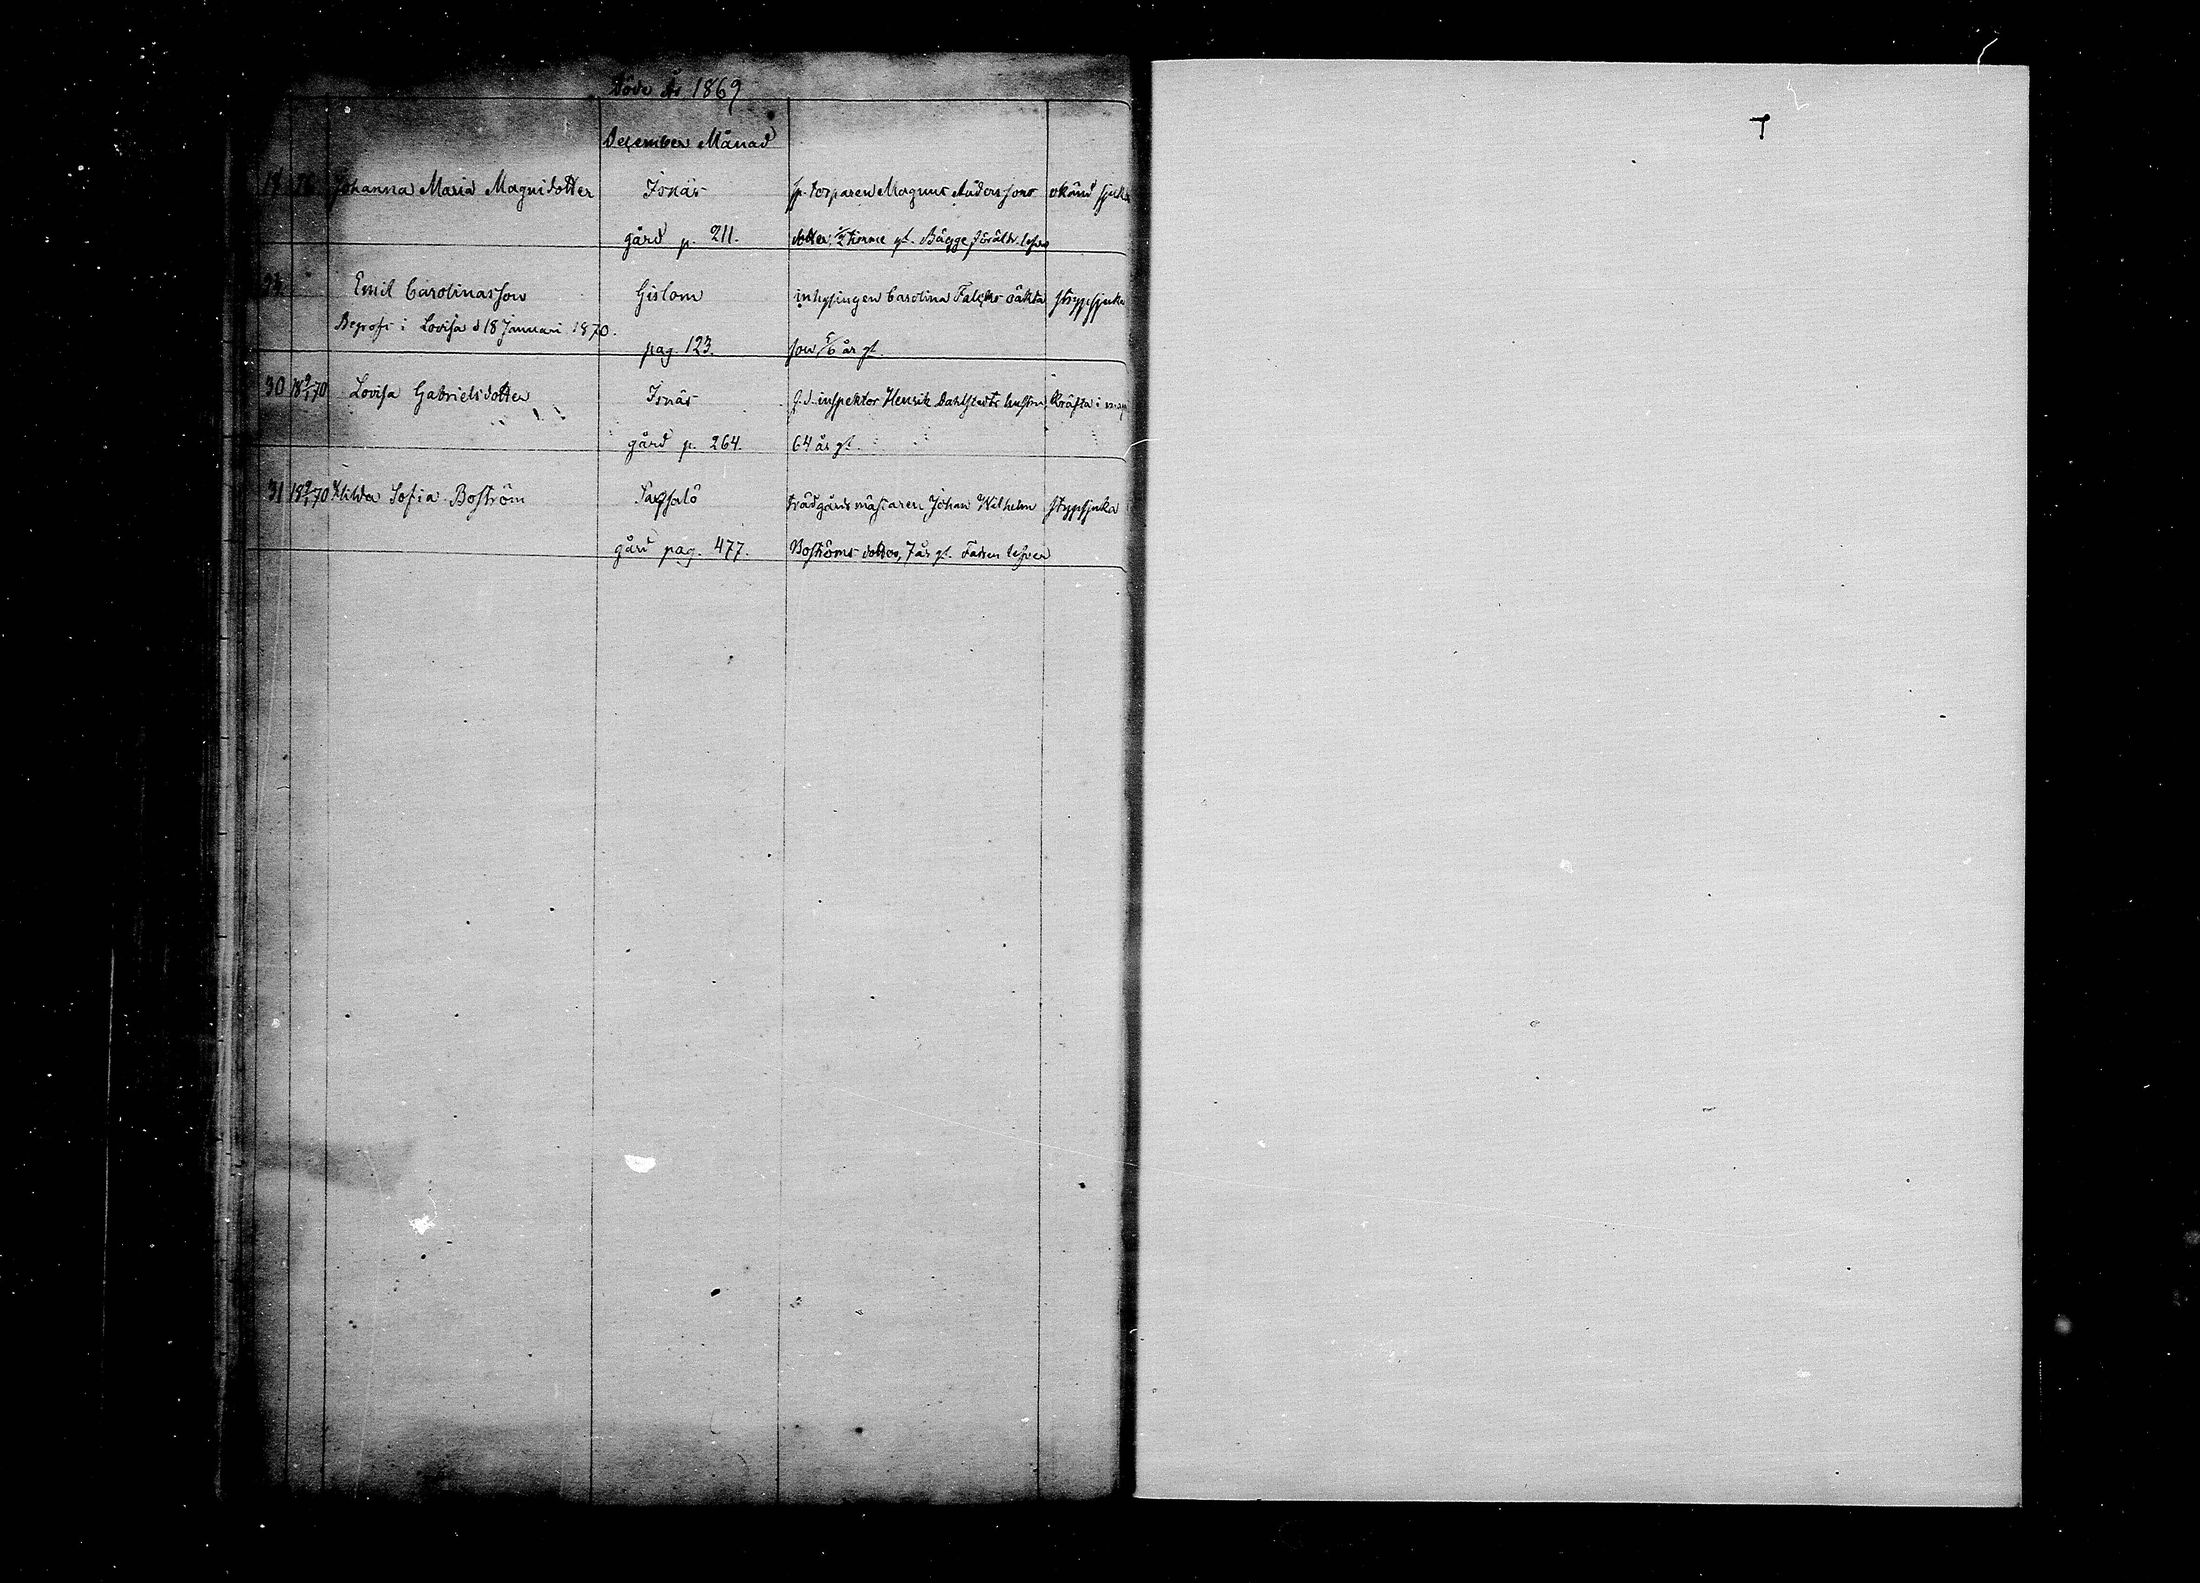 Döde År 1869
December Månad
19 26 Johanna Maria Magnidotter Isnäs torparen Magnus Anderssons okänd sjukd
gård p. 211. dotter, 1/2 timme gl. Bägge föräldr. lefva
Emil Carolinasson Gislom inhysingen Carolina Falcks oäkta strypsjuka
Begrofs i Lovisa d 18 Januari 1870.
pag. 123. son, 5/6 år gl.
30 18 9/1 70 Lovisa Gabrielsdotter Isnäs f.d. inspektor Henrik Dahlstedts hustru, Kräfta i mag
gård p. 264. 64 år gl.
31 18 9/1 70 Hilda Sofia Boström Sarfsalö trädgårdsmästaren Johan Wilhelm strypsjuka
gård pag. 477. Boströms dotter, 7 år gl. Fadren lefver